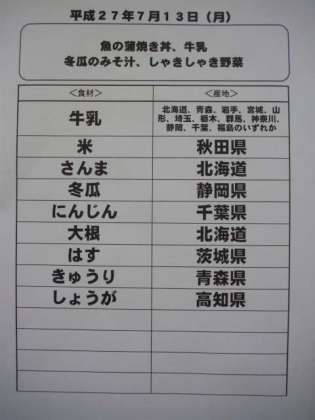 平成２７年７月１３日（月）
魚の蒲焼き丼、牛乳
冬瓜のみそ汁、しゃきしゃき野菜
＜食材＞ ＜産地＞
牛乳 北海道、青森、岩手、宮城、山
形、埼玉、栃木、群馬、神奈川、
静岡、千葉、福島のいずれか
米 秋田県
さんま 北海道
冬瓜 静岡県
にんじん 千葉県
大根 北海道
はす 茨城県
きゅうり 青森県
しょうが 高知県